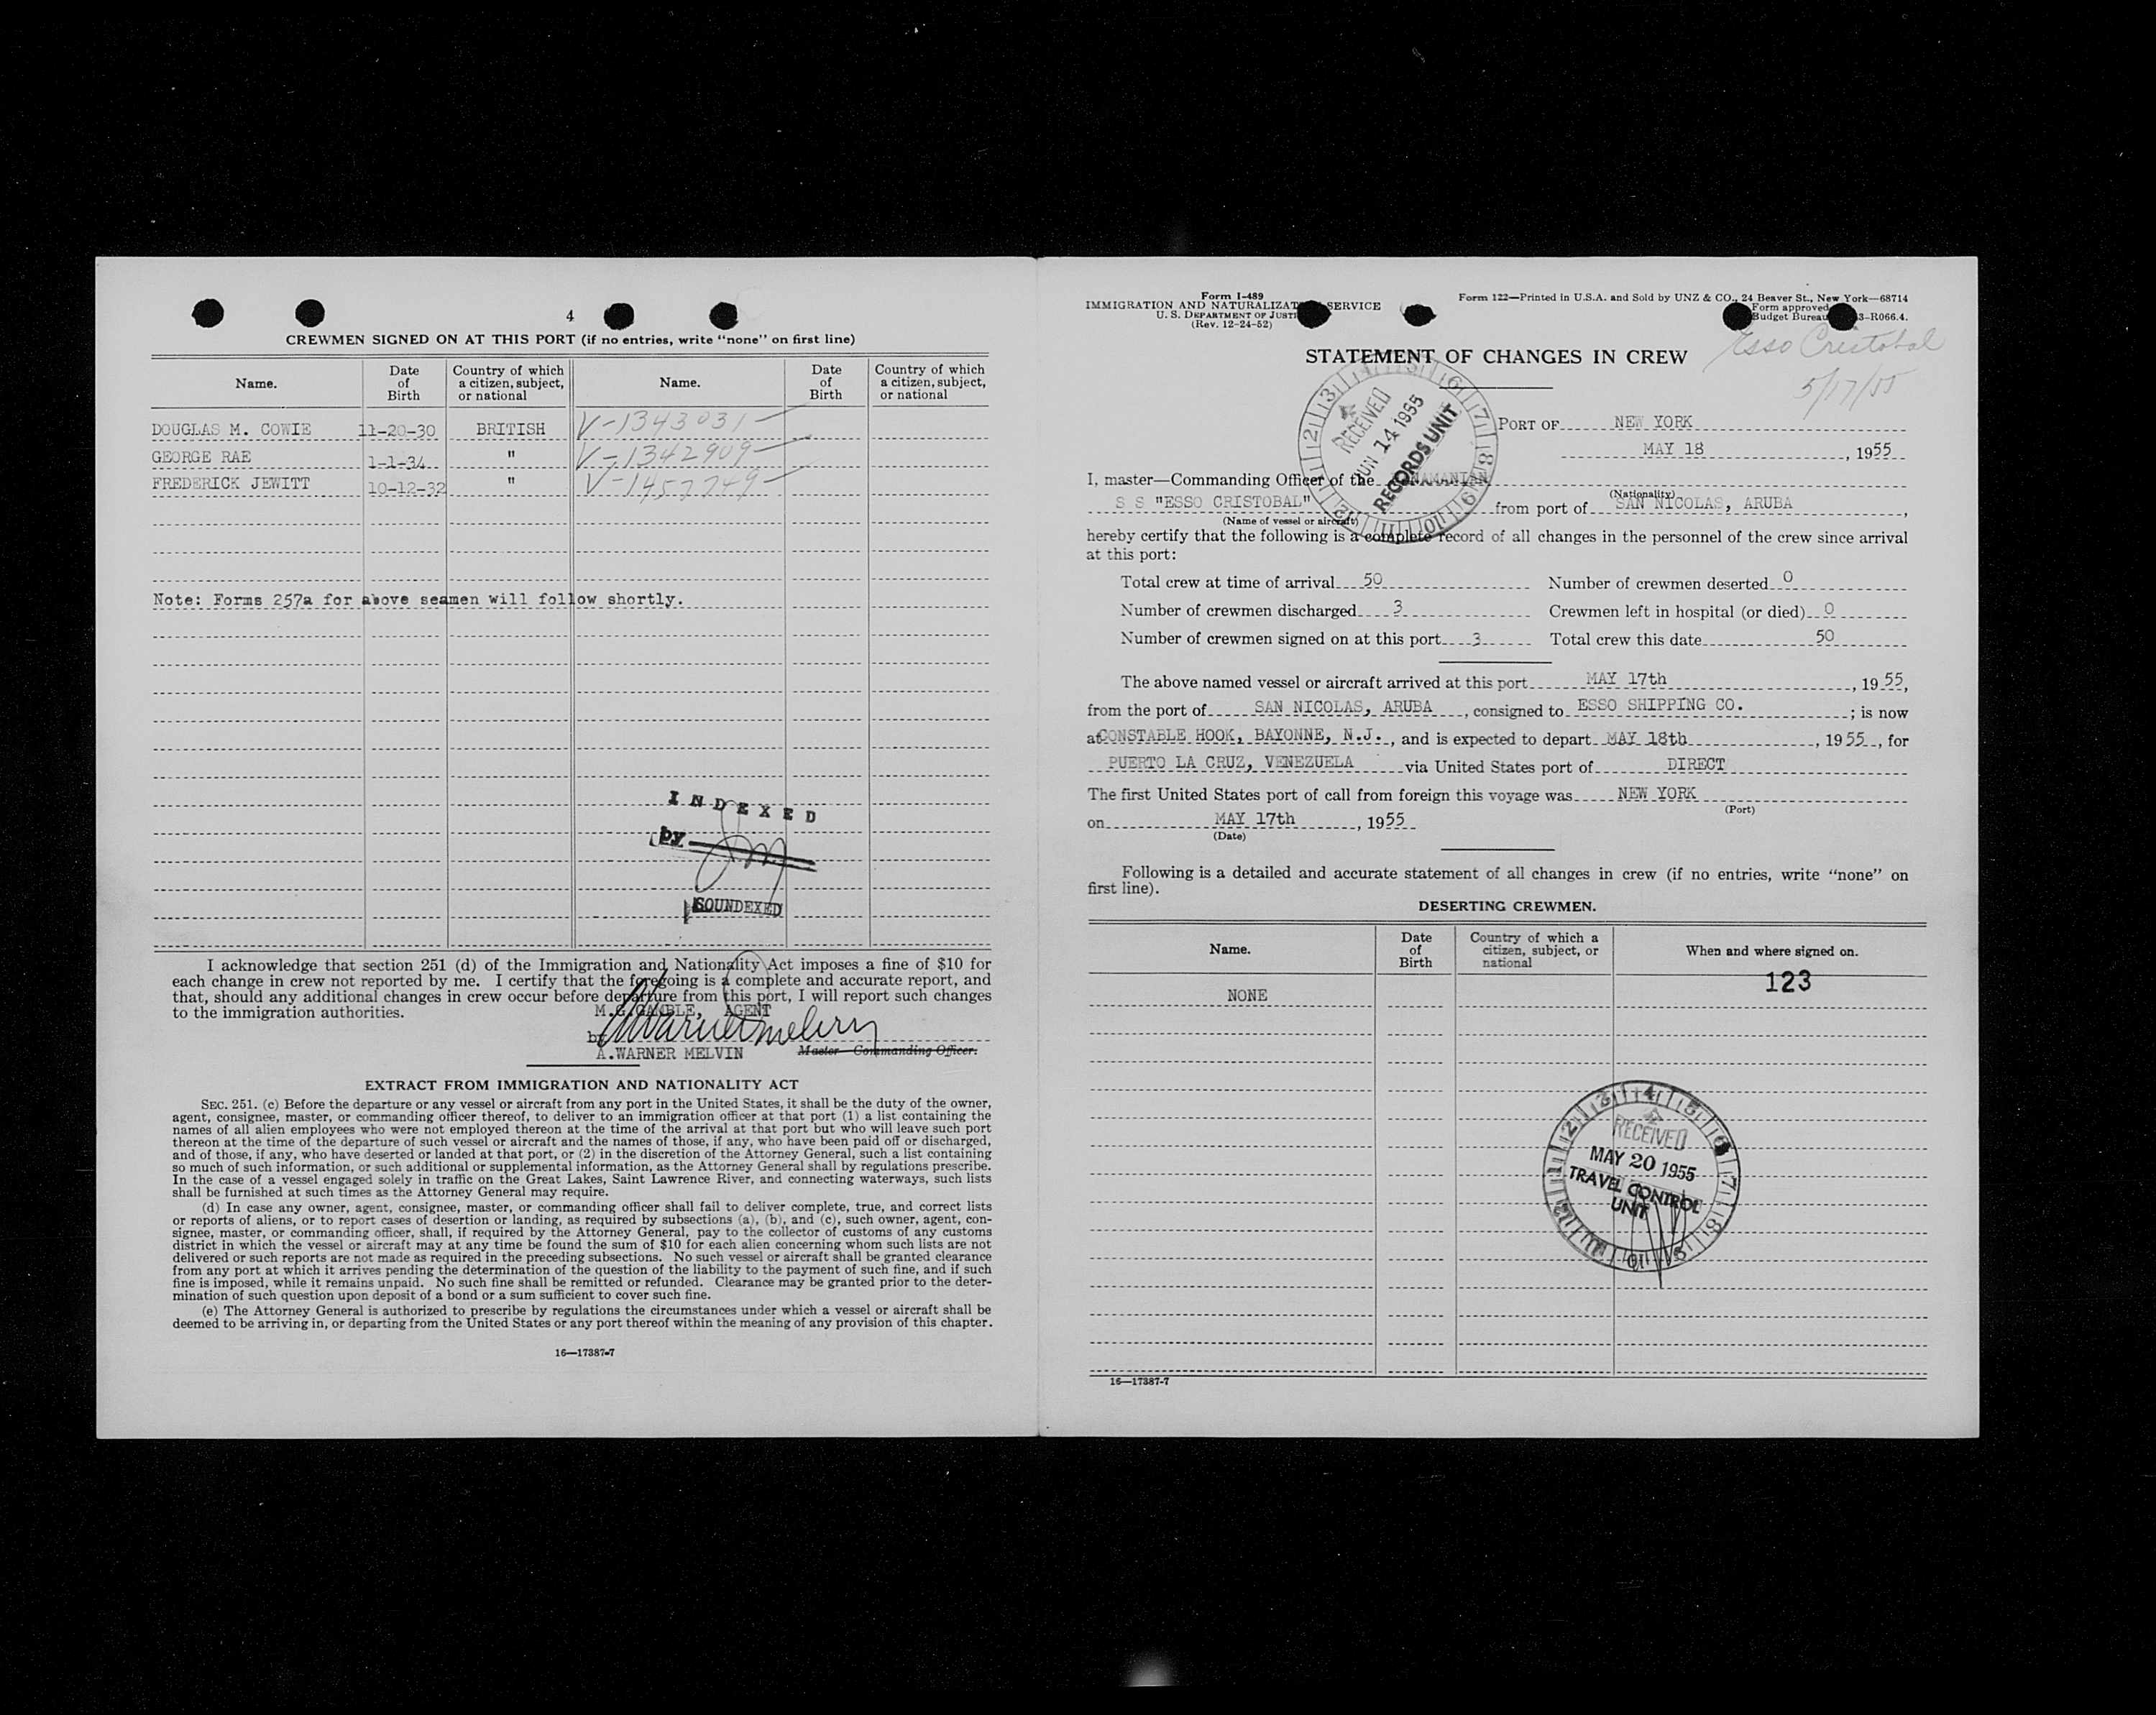 4
CREWMEN SIGNED ON AT THIS PORT (if no entries, write "none" on first line)
Name. Date of Birth Country of which a citizen, subject, or national Name. Date of Birth Country of which a citizen, subject, or national
DOUGLAS M. COWIE 11-20-30 BRITISH V-1343031
GEORGE RAE 1-1-34 " V-1342909
FREDERICK JEWITT 10-12-32 " V-1457749
Note: Forms 257a for above seamen will follow shortly.
INDEXED
by
SOUNDEXED
I acknowledge that section 251 (d) of the Immigration and Nationality Act imposes a fine of $10 for
each change in crew not reported by me. I certify that the foregoing is a complete and accurate report, and
that, should any additional changes in crew occur before departure from this port, I will report such changes
to the immigration authorities.
M.G.GAMBLE, AGENT
by
A.WARNER MELVIN Master—Commanding Officer.
EXTRACT FROM IMMIGRATION AND NATIONALITY ACT
SEC. 251. (c) Before the departure or any vessel or aircraft from any port in the United States, it shall be the duty of the owner,
agent, consignee, master, or commanding officer thereof, to deliver to an immigration officer at that port (1) a list containing the
names of all alien employees who were not employed thereon at the time of the arrival at that port but who will leave such port
thereon at the time of the departure of such vessel or aircraft and the names of those, if any, who have been paid off or discharged,
and of those, if any, who have deserted or landed at that port, or (2) in the discretion of the Attorney General, such a list containing
so much of such information, or such additional or supplemental information, as the Attorney General shall by regulations prescribe.
In the case of a vessel engaged solely in traffic on the Great Lakes, Saint Lawrence River, and connecting waterways, such lists
shall be furnished at such times as the Attorney General may require.
(d) In case any owner, agent, consignee, master, or commanding officer shall fail to deliver complete, true, and correct lists
or reports of aliens, or to report cases of desertion or landing, as required by subsections (a), (b), and (c), such owner, agent, con-
signee, master, or commanding officer, shall, if required by the Attorney General, pay to the collector of customs of any customs
district in which the vessel or aircraft may at any time be found the sum of $10 for each alien concerning whom such lists are not
delivered or such reports are not made as required in the preceding subsections. No such vessel or aircraft shall be granted clearance
from any port at which it arrives pending the determination of the question of the liability to the payment of such fine, and if such
fine is imposed, while it remains unpaid. No such fine shall be remitted or refunded. Clearance may be granted prior to the deter-
mination of such question upon deposit of a bond or a sum sufficient to cover such fine.
(e) The Attorney General is authorized to prescribe by regulations the circumstances under which a vessel or aircraft shall be
deemed to be arriving in, or departing from the United States or any port thereof within the meaning of any provision of this chapter.
16—17387-7
Form I-489
IMMIGRATION AND NATURALIZAT SERVICE
U. S. DEPARTMENT OF JUSTI
(Rev. 12-24-52)
Form 122—Printed in U.S.A. and Sold by UNZ & CO., 24 Beaver St., New York—68714
Form approved
Budget Bureau 3-R066.4.
Esso Cristobal
5/17/55
STATEMENT OF CHANGES IN CREW
RECEIVED
JUN 14 1955
RECORDS UNIT
PORT OF NEW YORK
MAY 18, 1955
I, master—Commanding Officer of the PANAMANIAN
(Nationality)
S S "ESSO CRISTOBAL" from port of SAN NICOLAS, ARUBA,
(Name of vessel or aircraft)
hereby certify that the following is a complete record of all changes in the personnel of the crew since arrival
at this port:
Total crew at time of arrival 50 Number of crewmen deserted 0
Number of crewmen discharged 3 Crewmen left in hospital (or died) 0
Number of crewmen signed on at this port 3 Total crew this date 50
The above named vessel or aircraft arrived at this port MAY 17th, 1955,
from the port of SAN NICOLAS, ARUBA, consigned to ESSO SHIPPING CO.; is now
at CONSTABLE HOOK, BAYONNE, N.J., and is expected to depart MAY 18th, 1955, for
PUERTO LA CRUZ, VENEZUELA via United States port of DIRECT
The first United States port of call from foreign this voyage was NEW YORK
(Port)
on MAY 17th, 1955
(Date)
Following is a detailed and accurate statement of all changes in crew (if no entries, write "none" on
first line).
DESERTING CREWMEN.
Name. Date of Birth Country of which a citizen, subject, or national When and where signed on.
123
NONE
RECEIVED
MAY 20 1955
TRAVEL CONTROL
UNIT
16—17387-7